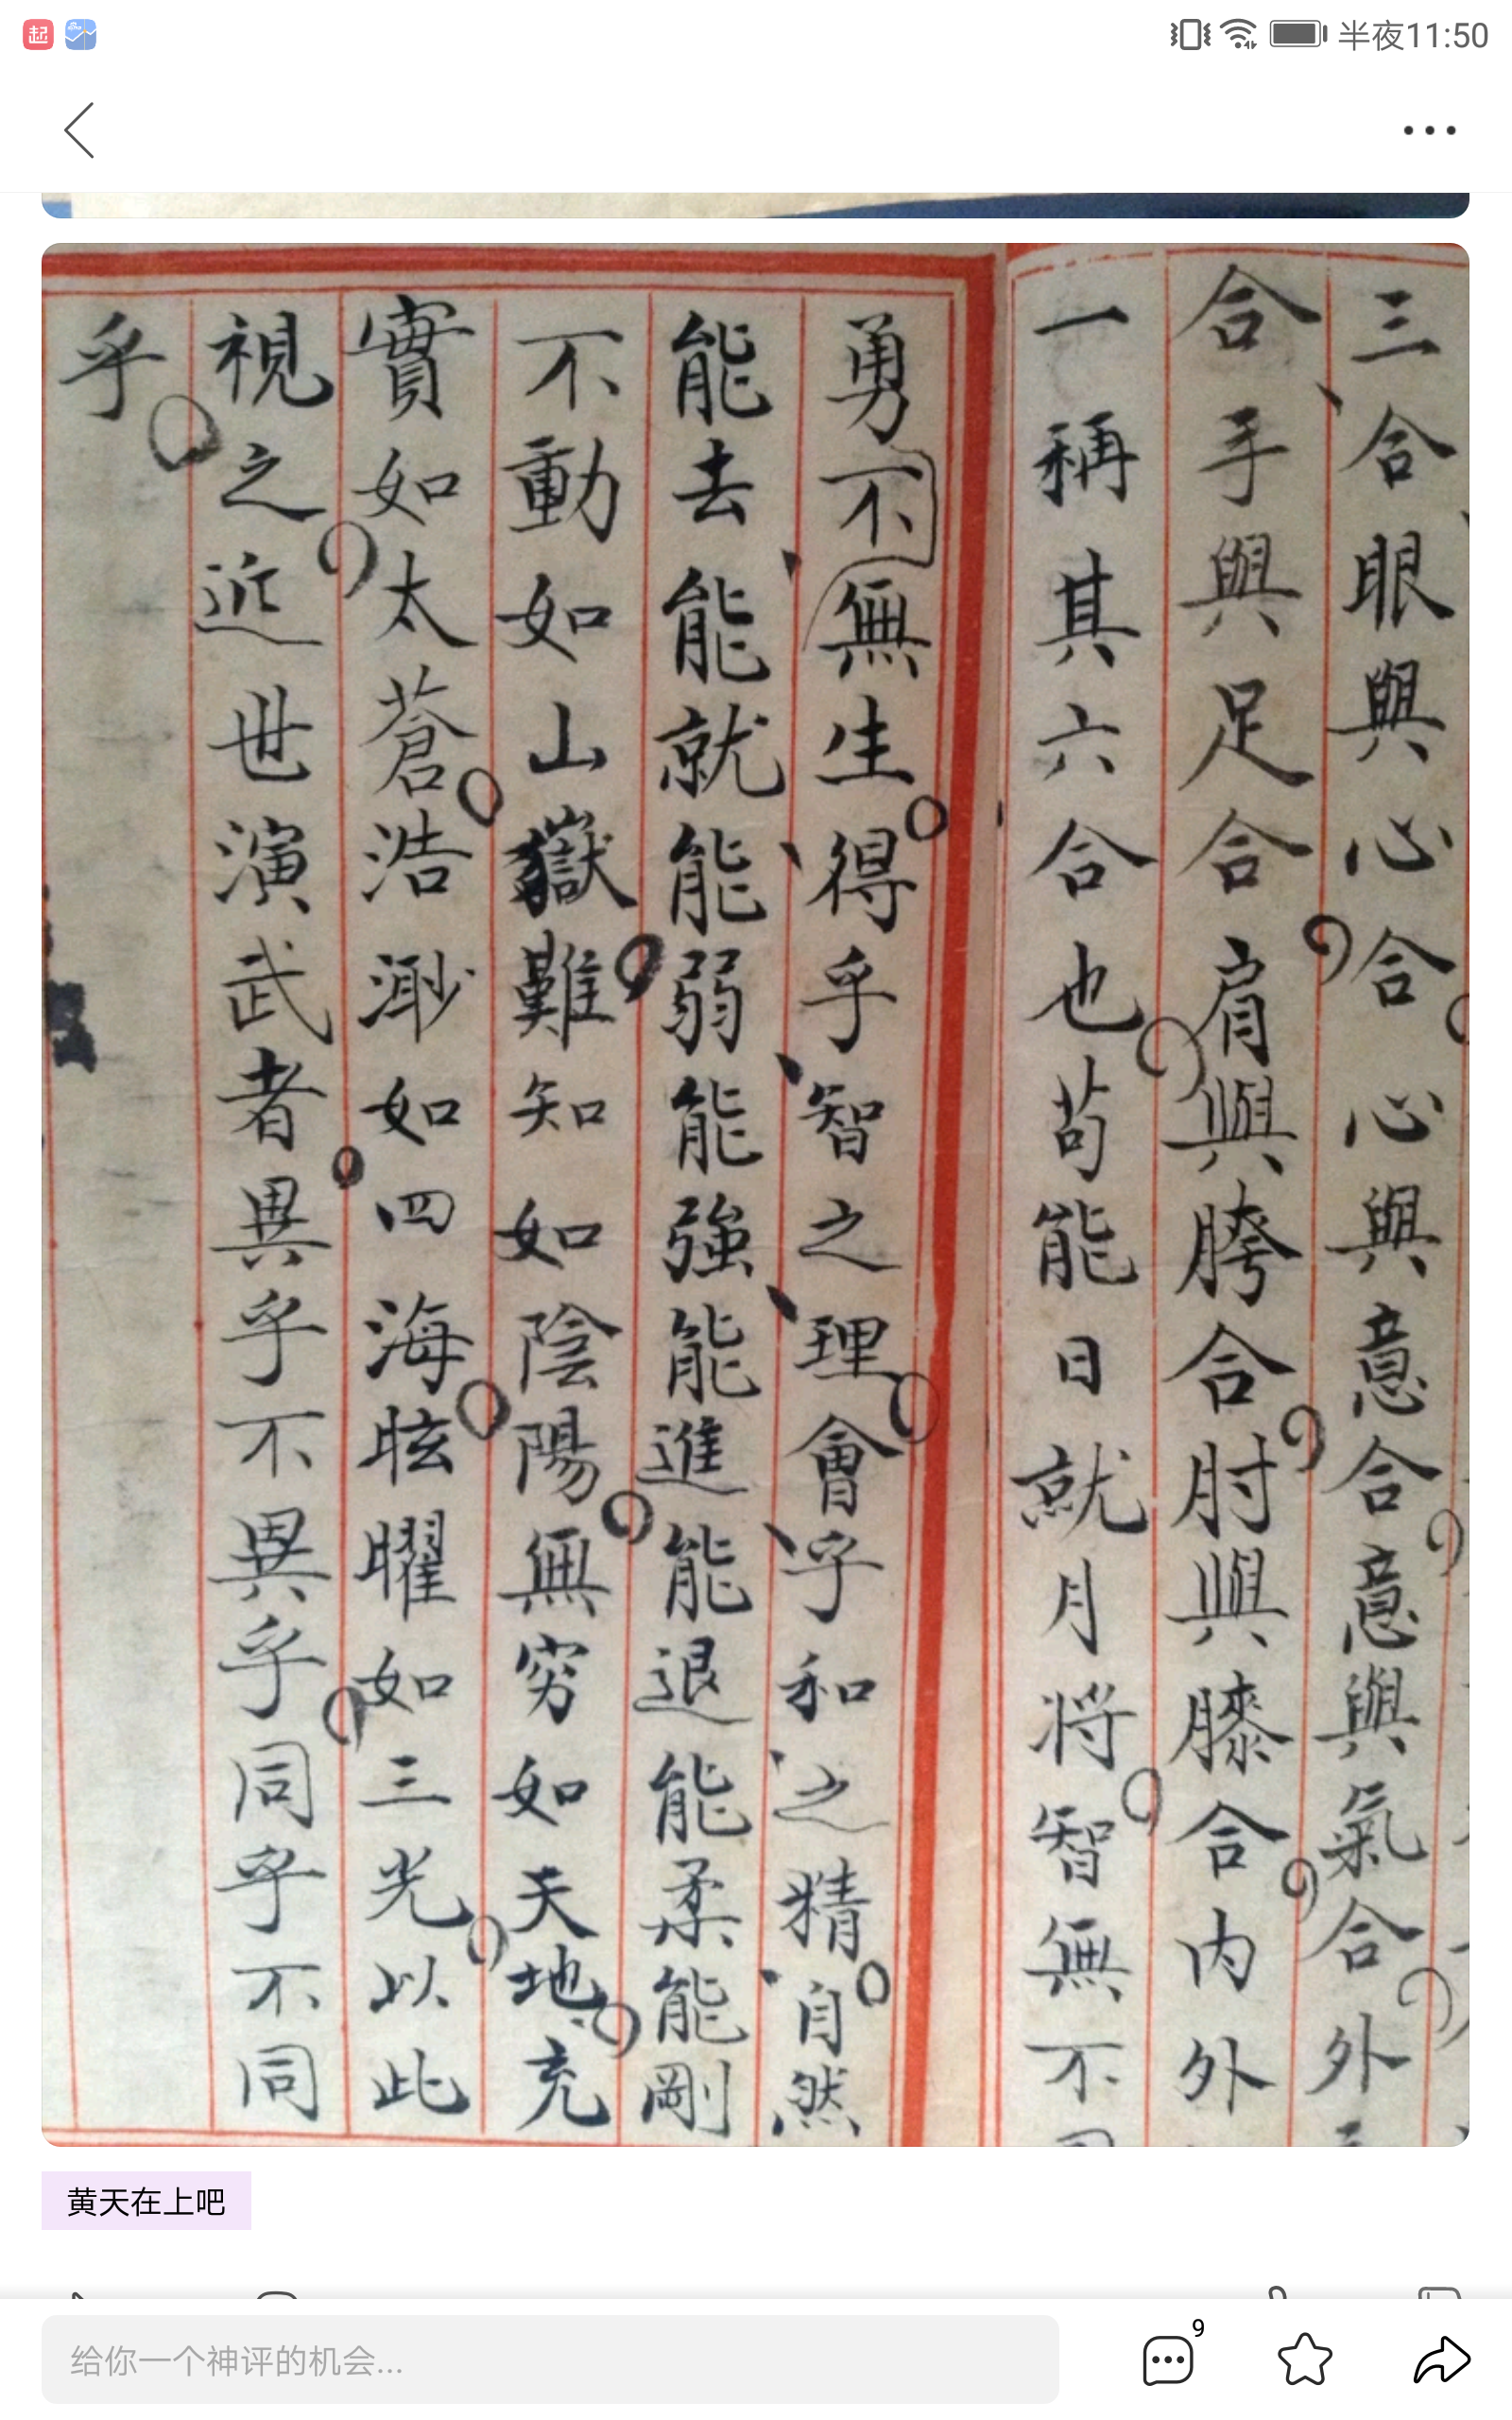 起
半夜11:50
三合眼與心合心與意合意與氣合外
合手與足合肩與胯合肘與膝合内外
一稱其六合也苟能日就月将智無不
勇不無生得乎智之理會乎和之精自然
能去能就能弱能強能進能退能柔能剛
不動如山嶽難知如陰陽無穷如天地充
實如太蒼浩渺如四海眩曜如三光以此
視之近世演武者異乎不異乎同乎不同
乎
黄天在上吧
给你一个神评的机会...
9